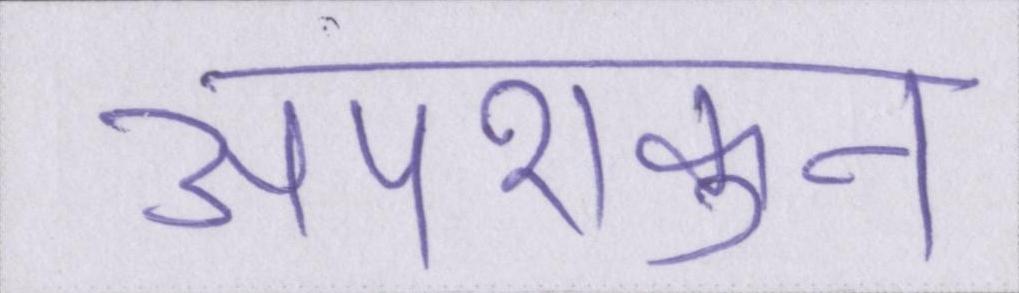 अपशकुन